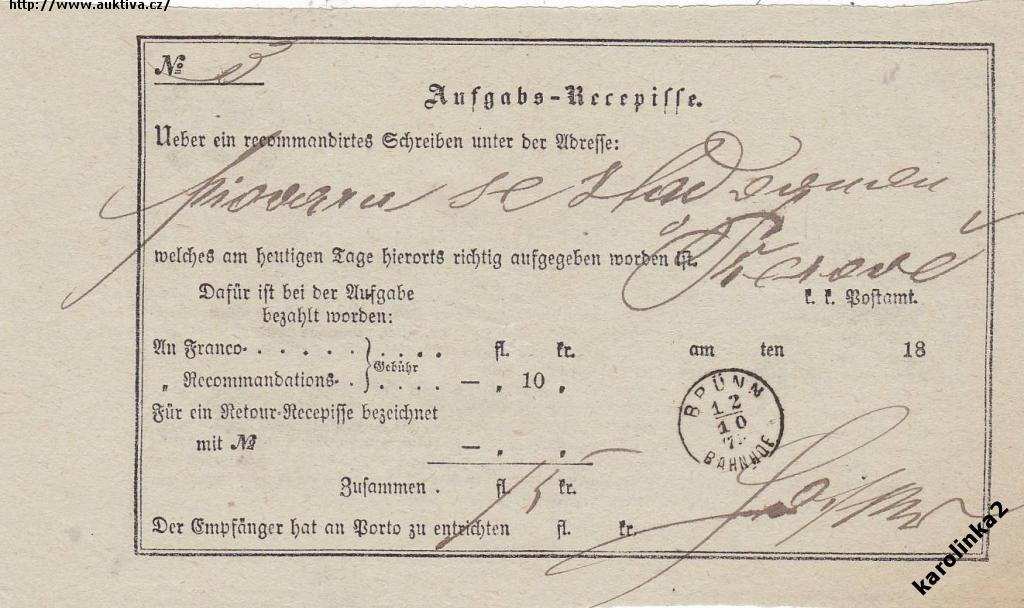 http://www.auktiva.cz/
№
Aufgabs-Recepisse.
Ueber ein recommandirtes Schreiben unter der Adresse:
welches am heutigen Tage hierorts richtig aufgegeben worden ist.
Přerově
Dafür ist bei der Aufgabe
bezahlt worden:
k. k. Postamt.
An Franco- . . . . . } . . . . fl. kr. am ten 18
Gebühr
„ Recommandations- . . . . . — „ 10 „
Für ein Retour-Recepisse bezeichnet
mit № — „ „
BRÜNN
12
10
BAHNHOF
Zusammen . fl. 15 kr.
Der Empfänger hat an Porto zu entrichten fl. kr.
karolinka2